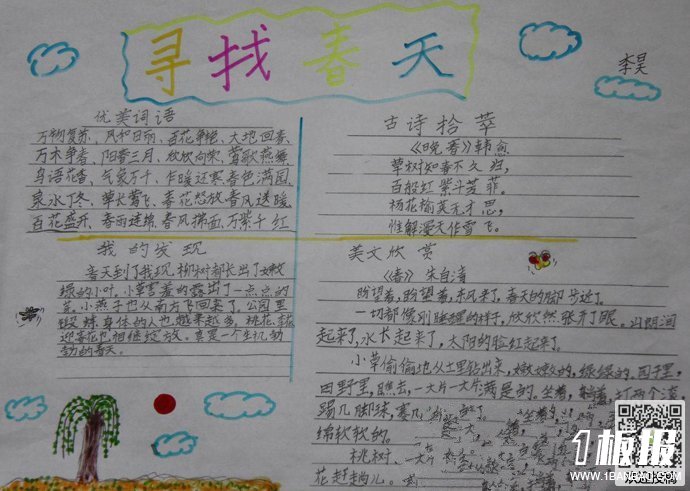 寻找春天
李昊
优美词语
万物复苏、风和日丽、百花争艳、大地回春、
万木争春、阳春三月、欣欣向荣、莺歌燕舞
鸟语花香、气象万千、乍暖还寒春色满园、
泉水丁冬、草长莺飞、春花怒放春风送暖、
百花盛开、春雨连绵、春风拂面、万紫千红
古诗拾萃
《晚春》韩愈
草树知春不久归,
百般红紫斗芳菲。
杨花榆荚无才思,
惟解漫天作雪飞。
我的发现
春天到了我现,柳树都长出了嫩
绿的小叶,小草害羞的露出了一点点的
芽。小燕子也从南方飞回来了,公园里
锻炼身体的人也越来越多,桃花、
迎春花也相继绽放。真是一个生机动
动的春天。
美文欣赏
《春》朱自清
盼望着,盼望着,东风来了,春天的脚步近了。
一切都像刚睡醒的样子,欣欣然张开了眼。山朗润
起来了,水长起来了,太阳的脸红起来了。
小草偷偷地从土里钻出来,嫩嫩的,绿绿的。园子里,
田野里,瞧去,一大片一大片满是的。坐着,躺着,打两个滚,
踢几脚球,赛几
绵软软的。
桃树、
花赶趟儿。
1板报
WWW.1BANBAO.COM